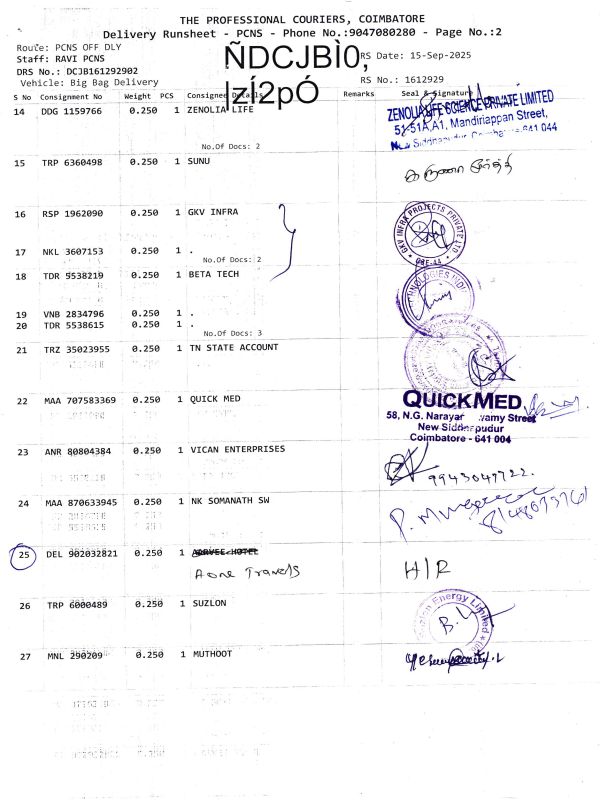 THE PROFESSIONAL COURIERS, COIMBATORE
Delivery Runsheet - PCNS - Phone No.:9047080280 - Page No.:2
Route: PCNS OFF DLY
Staff: RAVI PCNS
ÑDCJBÌ0,
RS Date: 15-Sep-2025
DRS No.: DCJB161292902
Vehicle: Big Bag Delivery
|zÍ2pÓ
RS No.: 1612929
S No Consignment No Weight PCS Consignee Details Remarks Seal & Signature
14 DDG 1159766 0.250 1 ZENOLIA LIFE
ZENOLIA LIFE SCIENCE PRIVATE LIMITED
51-51A,A1, Mandiriappan Street,
New Siddhapudur, Coimbatore-641 044
No.Of Docs: 2
15 TRP 6360498 0.250 1 SUNU
16 RSP 1962090 0.250 1 GKV INFRA
GKV INFRA PROJECTS PRIVATE LTD
CBE-44
17 NKL 3607153 0.250 1 .
No.Of Docs: 2
18 TDR 5538219 0.250 1 BETA TECH
19 VNB 2834796 0.250 1 .
20 TDR 5538615 0.250 1 .
No.Of Docs: 3
21 TRZ 35023955 0.250 1 TN STATE ACCOUNT
22 MAA 707583369 0.250 1 QUICK MED
QUICKMED
58, N.G. Narayan swamy Street
New Siddhapudur
Coimbatore - 641 004
23 ANR 80804384 0.250 1 VICAN ENTERPRISES
9943049722.
24 MAA 870633945 0.250 1 NK SOMANATH SW
25 DEL 902032821 0.250 1 AARVEE HOTEL
Aone Travels
H/R
26 TRP 6000489 0.250 1 SUZLON
Suzlon Energy Limited
27 MNL 290209 0.250 1 MUTHOOT